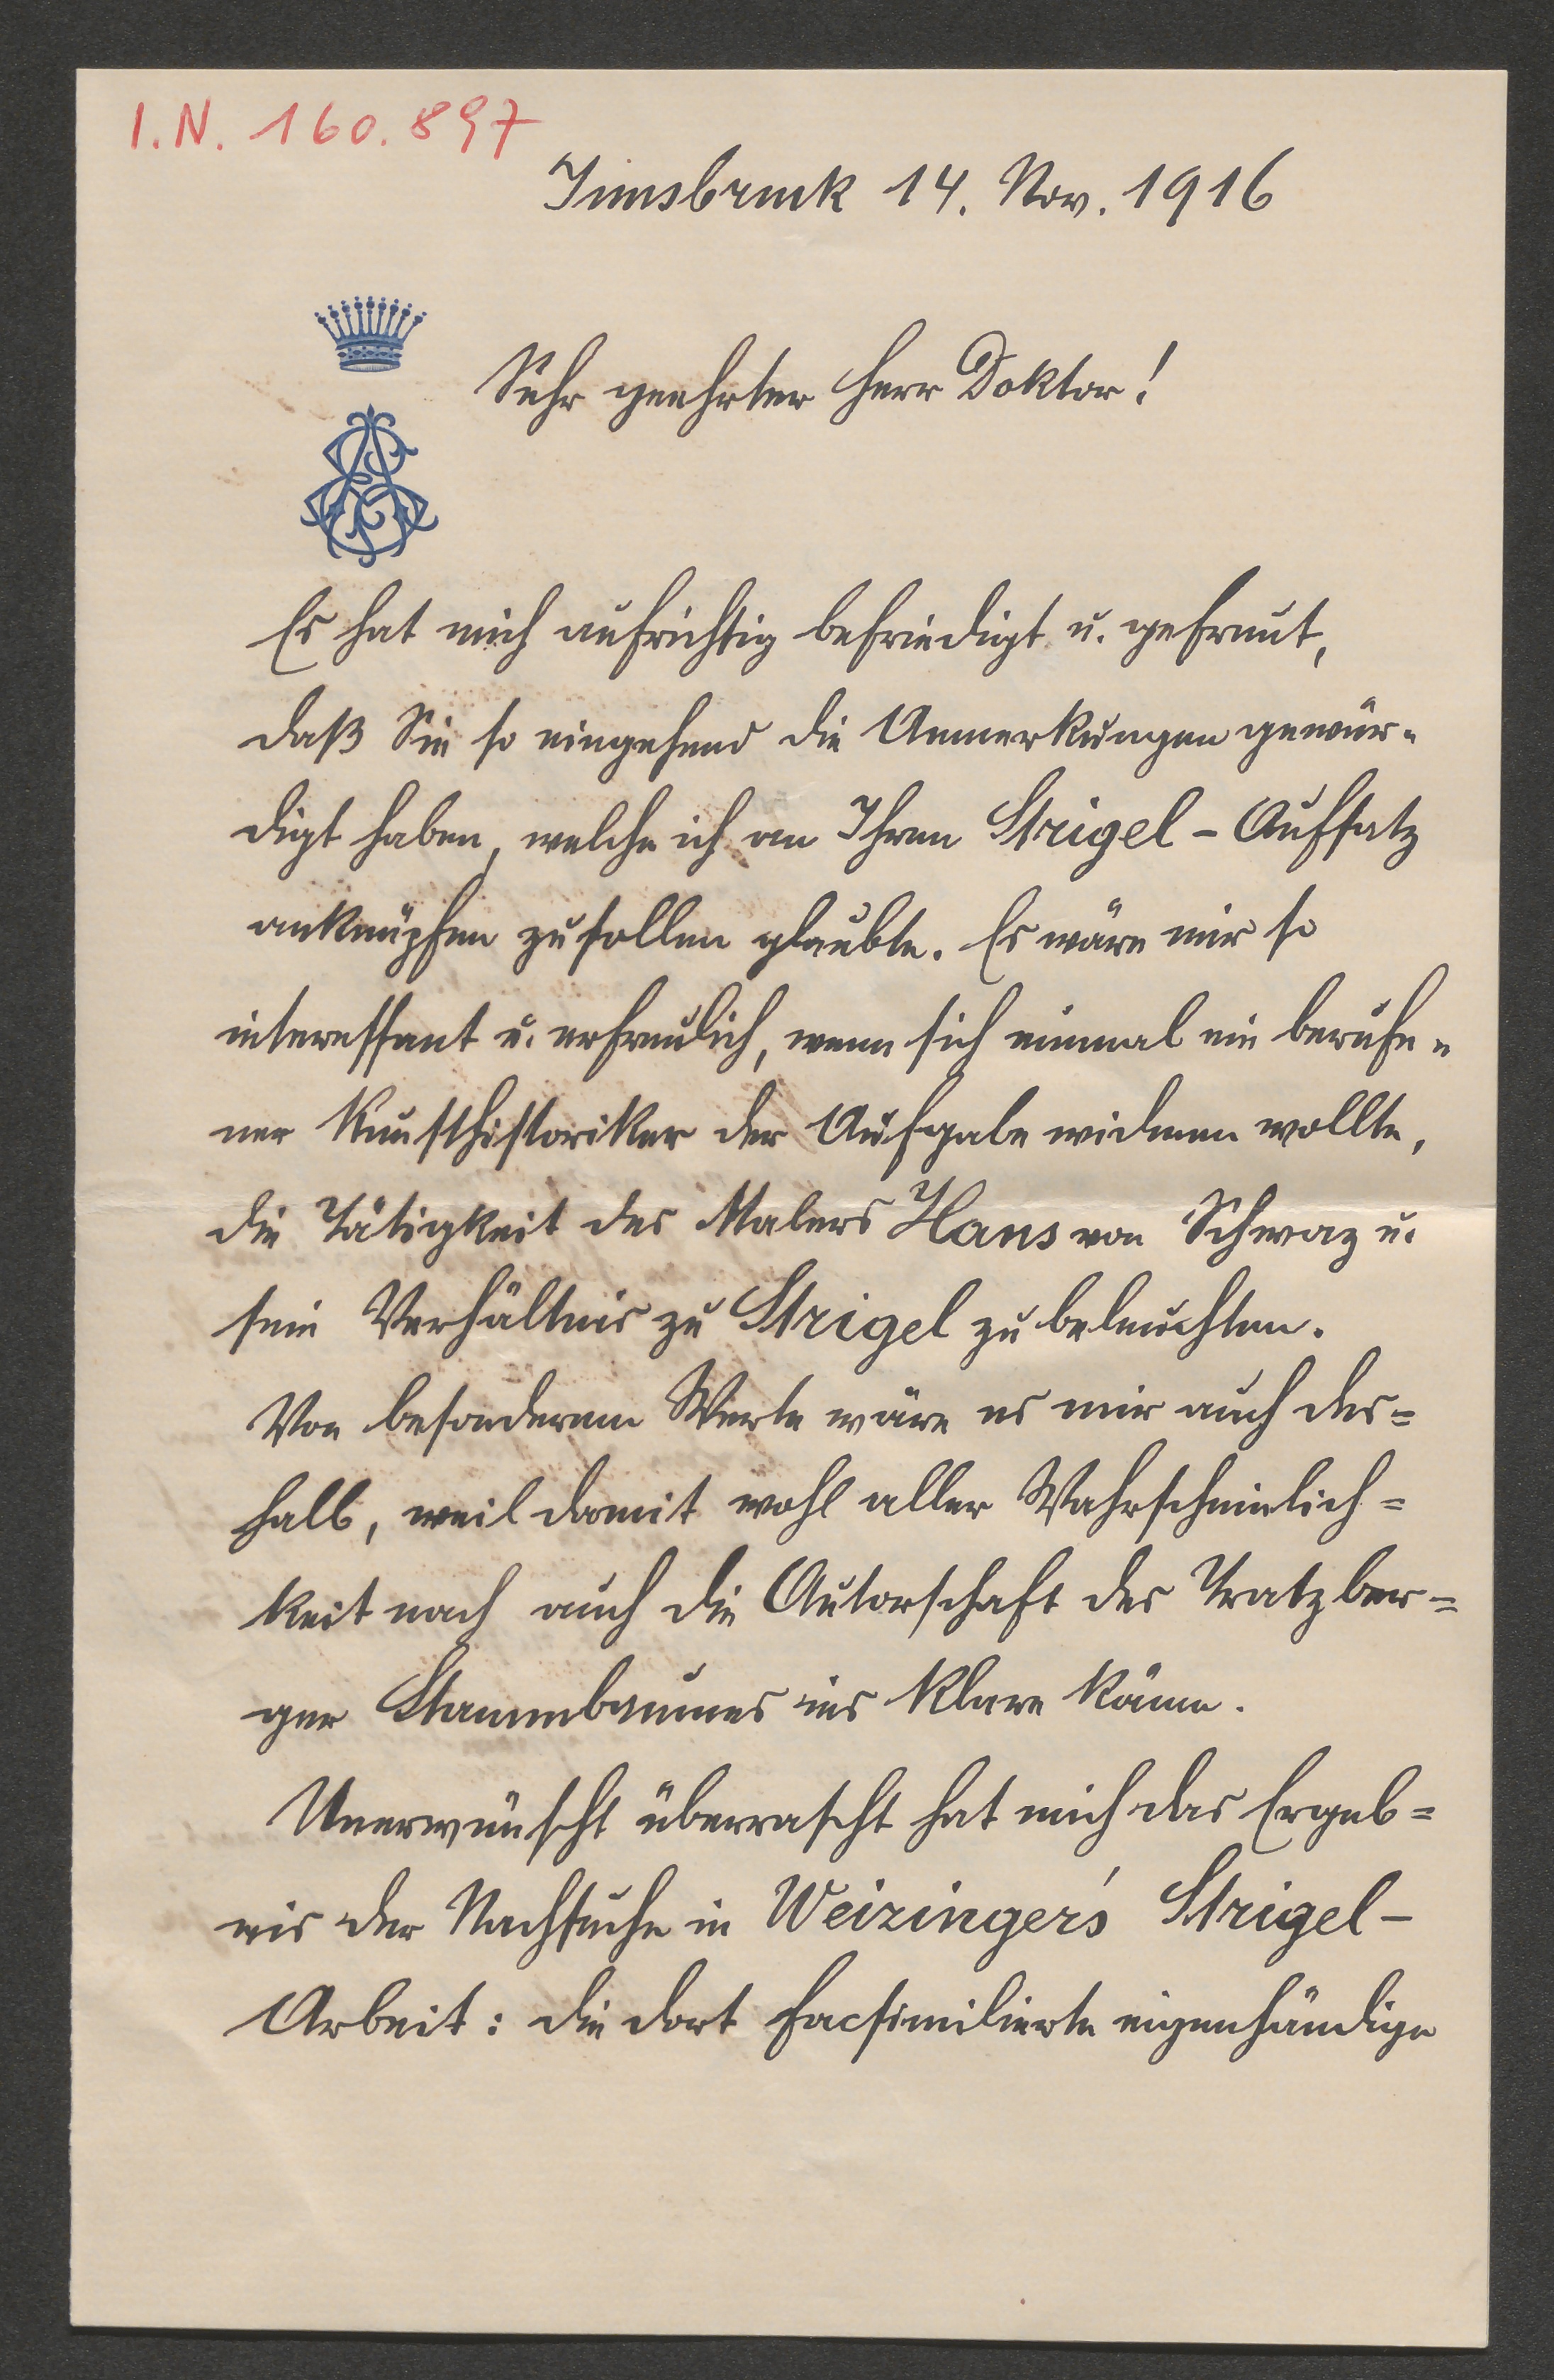 I.N. 160.897
Innsbruck 14. Nov. 1916
Sehr geehrter Herr Doktor!
Es hat mich aufrichtig befriedigt u. gefreut,
daß Sie so eingehend die Anmerkungen gewür-
digt haben, welche ich an Ihren Strigel-Aufsatz
anknüpfen zu sollen glaubte. Es wäre mir so
interessant u. erfreulich, wenn sich einmal ein berufe-
ner Kunsthistoriker der Aufgabe widmen wollte,
die Tätigkeit des Malers Hans von Schwaz u.
sein Verhältnis zu Strigel zu beleuchten.
Von besonderem Werte wäre es mir auch des=
halb, weil damit wohl aller Wahrscheinlich=
keit nach auch die Autorschaft des Tratzber=
ger Stammbaumes ins Klare käme.
Unerwünscht überrascht hat mich das Ergeb=
nis der Nachsuche in Weizinger's Strigel-
Arbeit: die dort facsimilierte eigenhändige